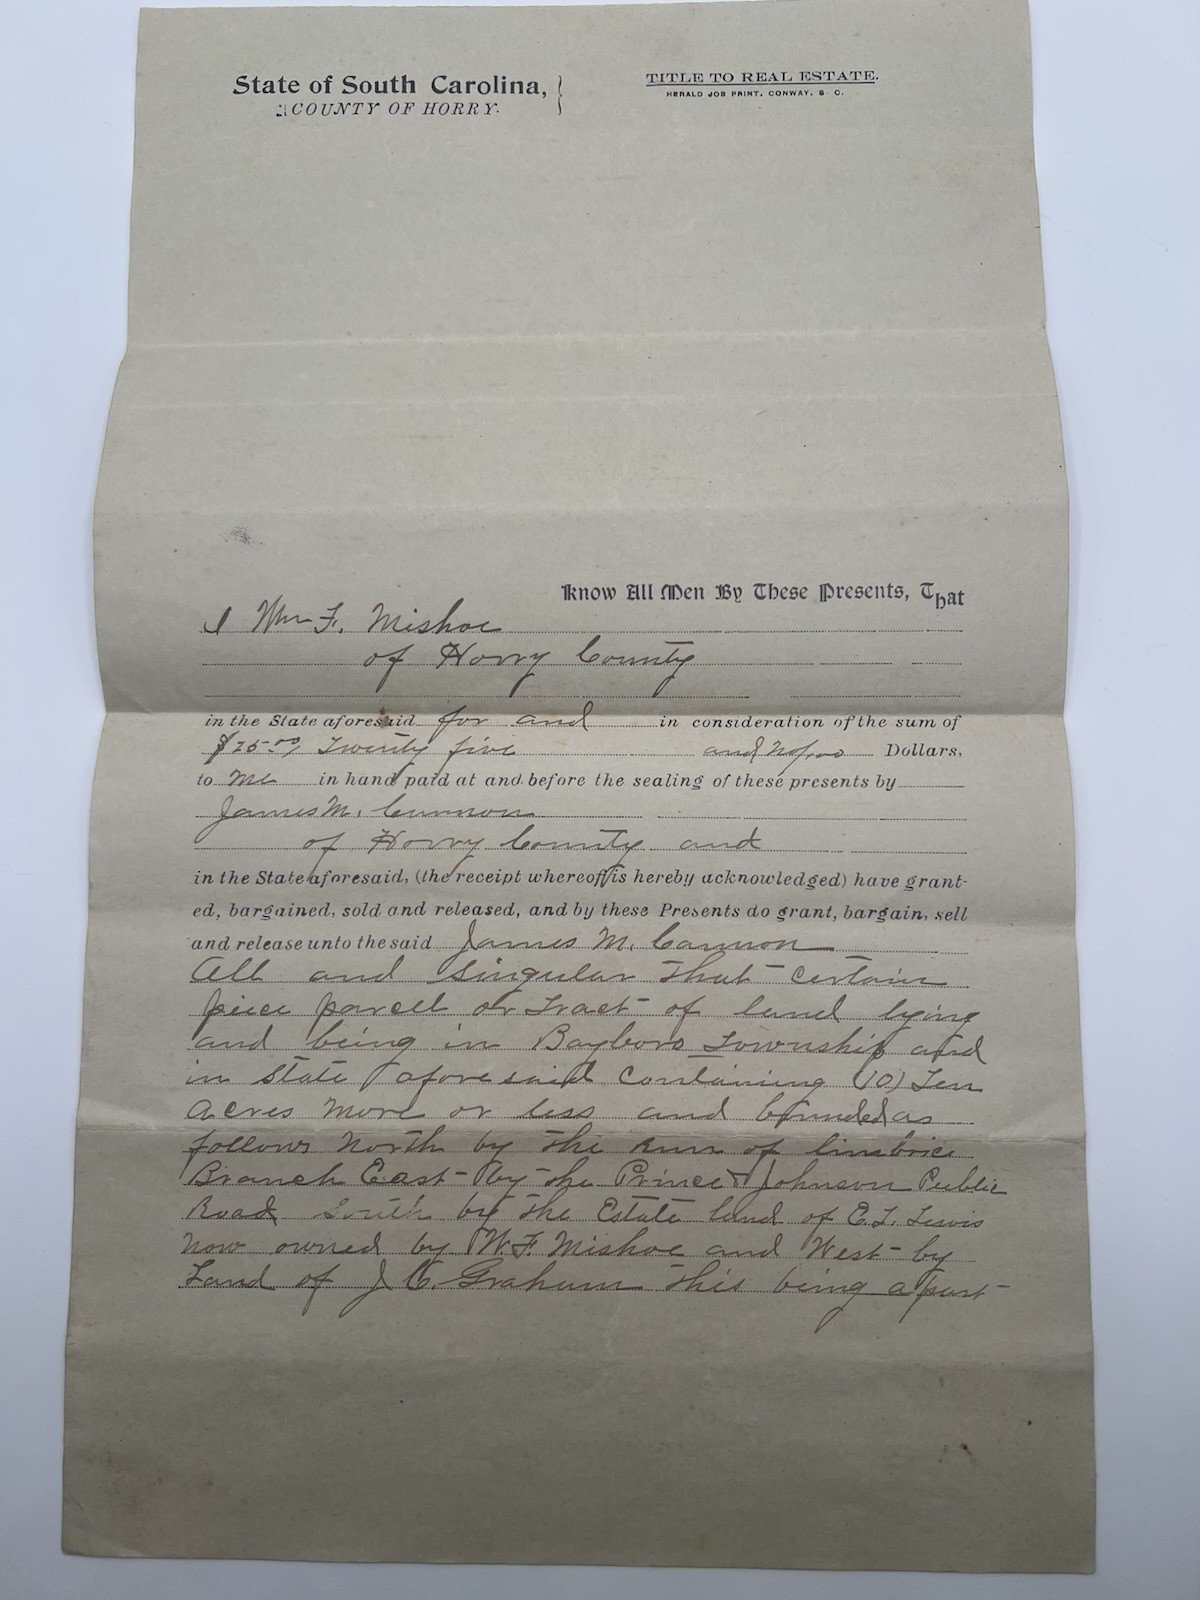 State of South Carolina,
COUNTY OF HORRY.
TITLE TO REAL ESTATE.
HERALD JOB PRINT, CONWAY, S. C.
Know All Men By These Presents, That
I Wm F. Mishoe
of Horry County
in the State aforesaid for and in consideration of the sum of
$25.00 Twenty five and no/00 Dollars,
to me in hand paid at and before the sealing of these presents by
James M. Cannon
of Horry County and
in the State aforesaid, (the receipt whereof is hereby acknowledged) have grant-
ed, bargained, sold and released, and by these Presents do grant, bargain, sell
and release unto the said James M. Cannon
All and singular that certain
piece parcell or Tract of land lying
and being in Bayboro Township and
in State afore said Containing (10) Ten
Acres more or less and bounded as
follows North by the Run of
Branch East by the Prince & Johnson Public
Road South by the Estate land of E. L. Lewis
now owned by W. F. Mishoe and West by
Land of J. C. Graham this being a part